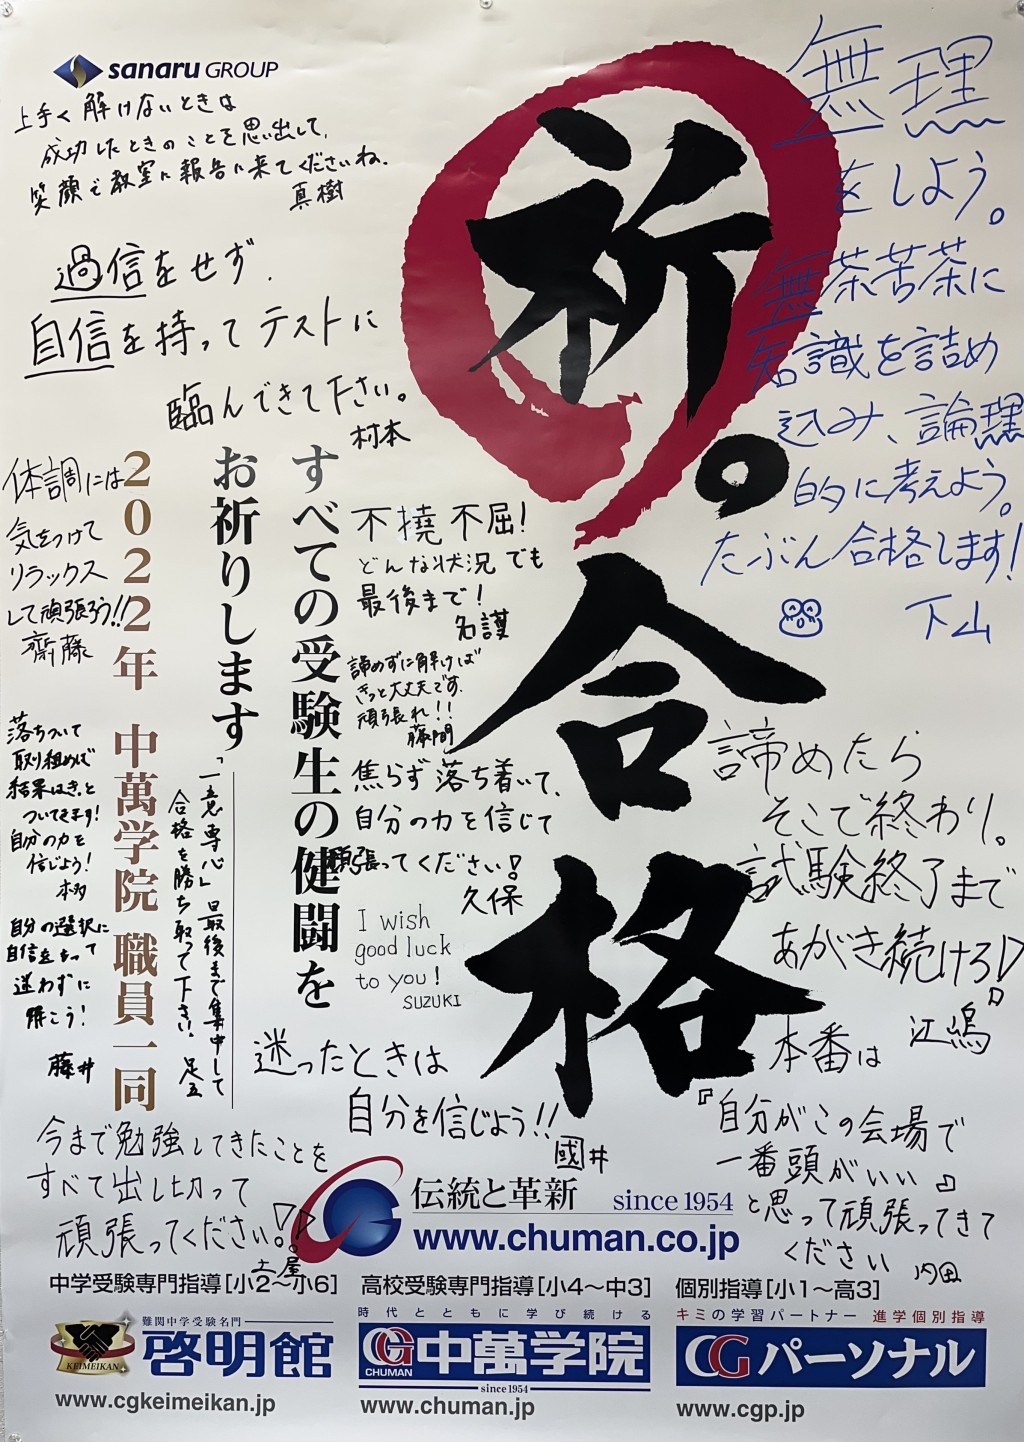 sanaru GROUP
上手く解けないときは
成功したときのことを思い出して、
笑顔で教室に報告に来てくださいね。
真樹
過信をせず、
自信を持ってテストに
臨んできて下さい。
村本
祈。合格
無理
をしよう。
無茶苦茶に
知識を詰め
込み、論理
的に考えよう。
たぶん合格します!
下山
すべての受験生の健闘を
お祈りします
2022年 中萬学院 職員一同
体調には
気をつけて
リラックス
して頑張ろう!!
齋藤
不撓不屈!
どんな状況でも
最後まで!
名護
諦めずに解けば
きっと大丈夫です。
頑張れ!!
藤間
焦らず落ち着いて、
自分の力を信じて
頑張ってください!
久保
I wish
good luck
to you!
SUZUKI
諦めたら
そこで終わり。
試験終了まで
あがき続けろ!
江嶋
落ちついて
取り組めば
結果はきっと
ついてきます!
自分の力を
信じよう!
本多
自分の選択に
自信をもって
迷わずに
解こう!
藤井
「一意専心」最後まで集中して
合格を勝ち取って下さい。 足立
迷ったときは
自分を信じよう!!
國井
本番は
『自分がこの会場で
一番頭がいい』
と思って頑張ってきて
ください
内田
今まで勉強してきたことを
すべて出し切って
頑張ってください!!
土屋
伝統と革新 since 1954
www.chuman.co.jp
中学受験専門指導[小2〜小6]
難関中学受験名門
KEIMEIKAN
啓明館
www.cgkeimeikan.jp
高校受験専門指導[小4〜中3]
時代とともに学び続ける
CG CHUMAN 中萬学院
since1954
www.chuman.jp
個別指導[小1〜高3]
キミの学習パートナー 進学個別指導
CGパーソナル
www.cgp.jp